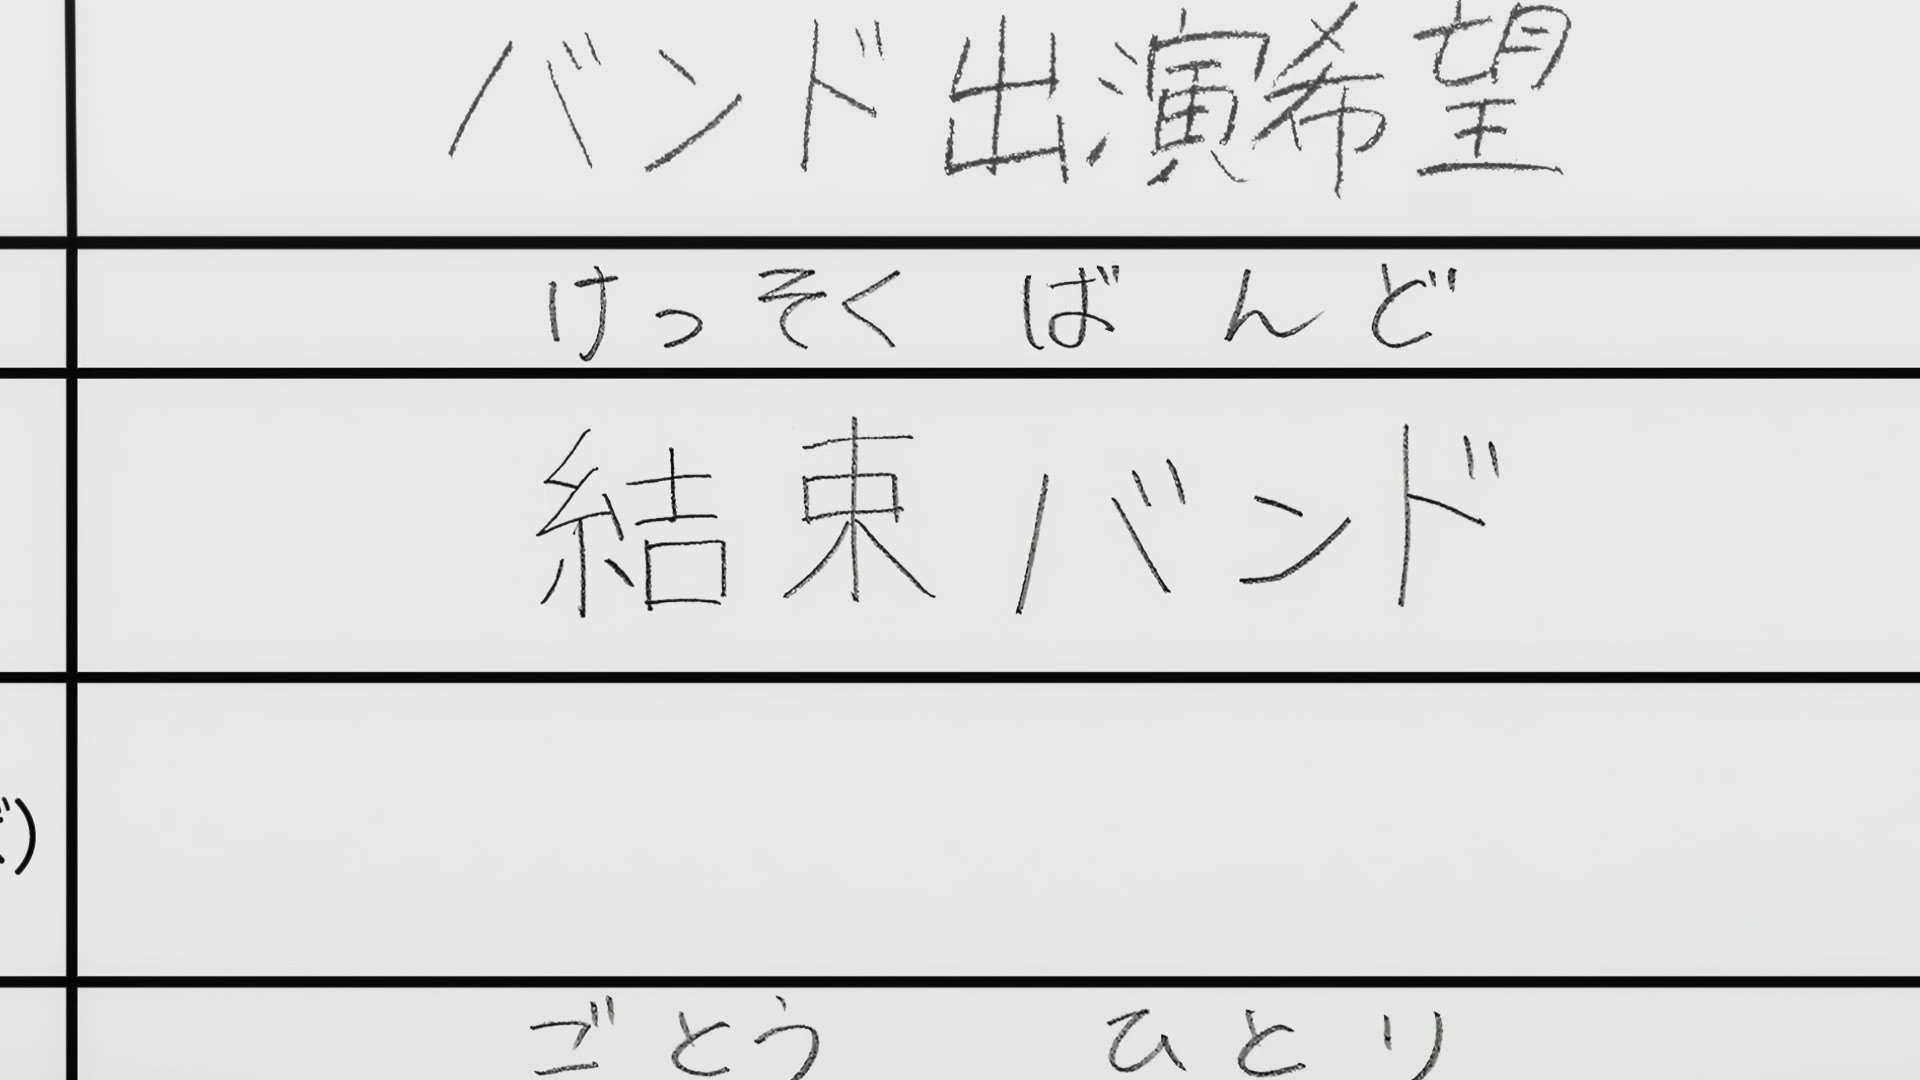 バンド出演希望
けっそくばんど
結束バンド
ごとう ひとり